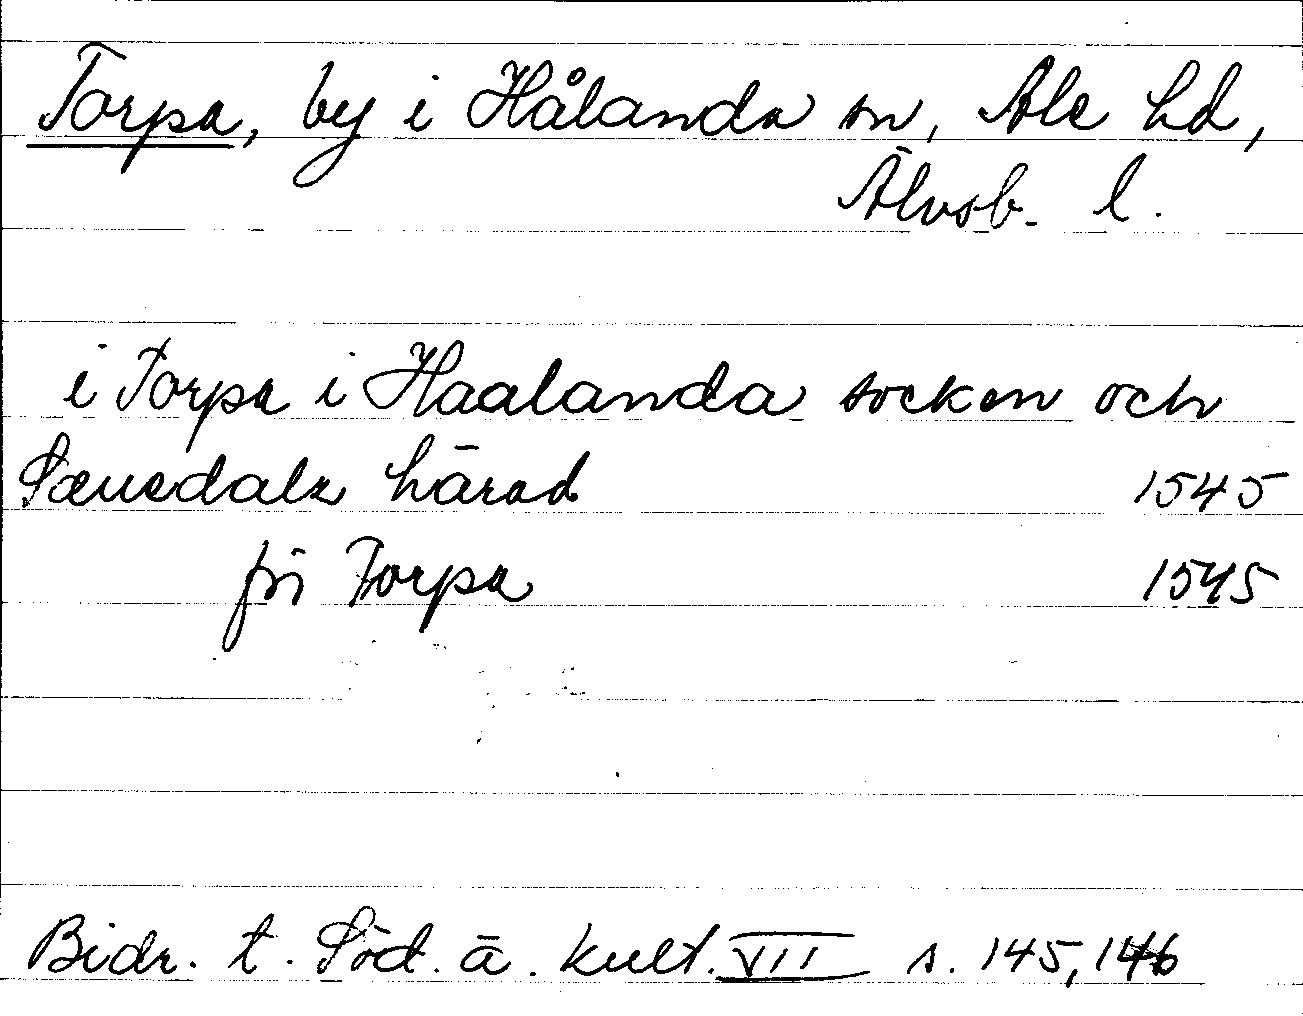 Torpa, by i Hålanda sn, Ale hd,
Älvsb. l.
i Torpa i Haalanda socken och
Sæuedalz härad 1545
fri Torpa 1545
Bidr. t. Söd. ä. kult. VII s. 145, 146